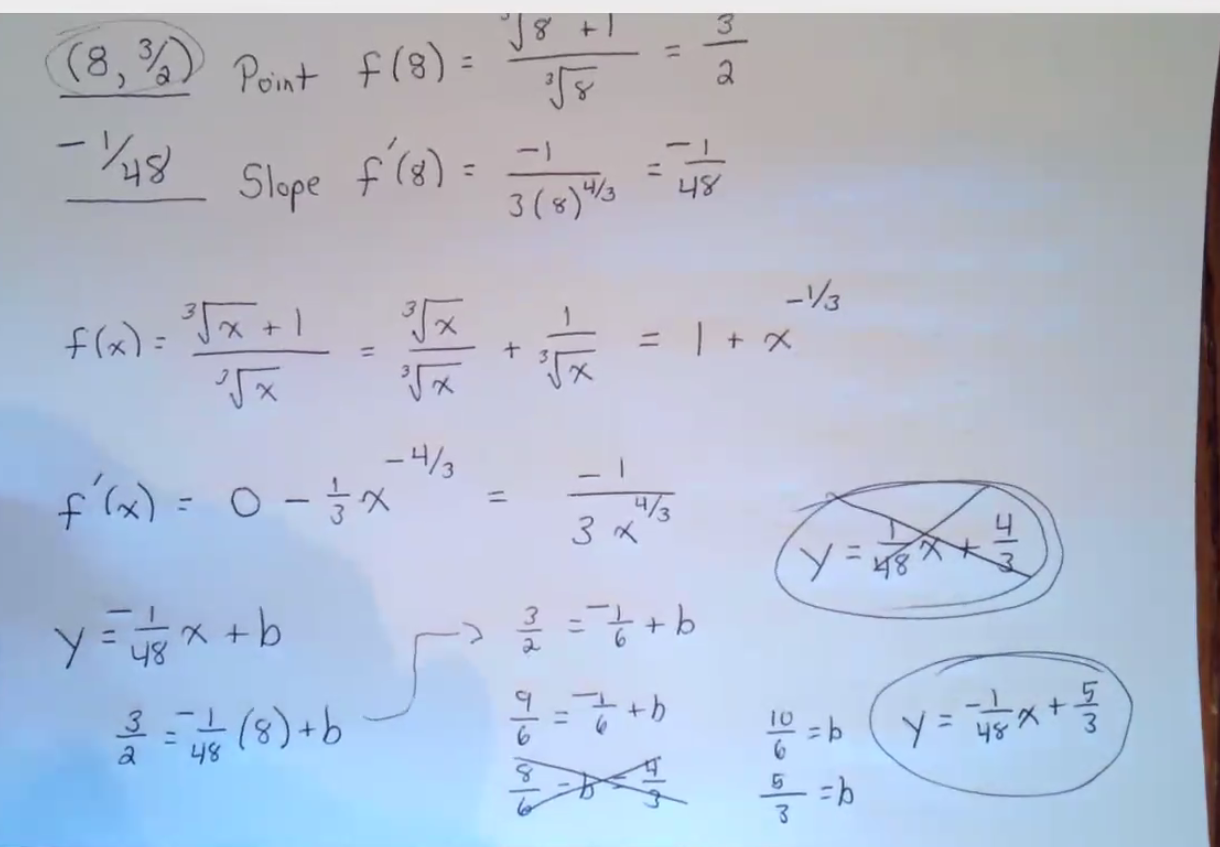 (8, 3/2) Point f(8) = (∛8 + 1)/∛8 = 3/2
-1/48 Slope f'(8) = -1/(3(8)^(4/3)) = -1/48
f(x) = (∛x + 1)/∛x = ∛x/∛x + 1/∛x = 1 + x^(-1/3)
f'(x) = 0 - 1/3 x^(-4/3) = -1/(3x^(4/3))
y = 1/48 x + 4/3
y = -1/48 x + b → 3/2 = -1/6 + b
3/2 = -1/48 (8) + b
9/6 = -1/6 + b
8/6 = b = 4/3
10/6 = b
5/3 = b
y = -1/48 x + 5/3